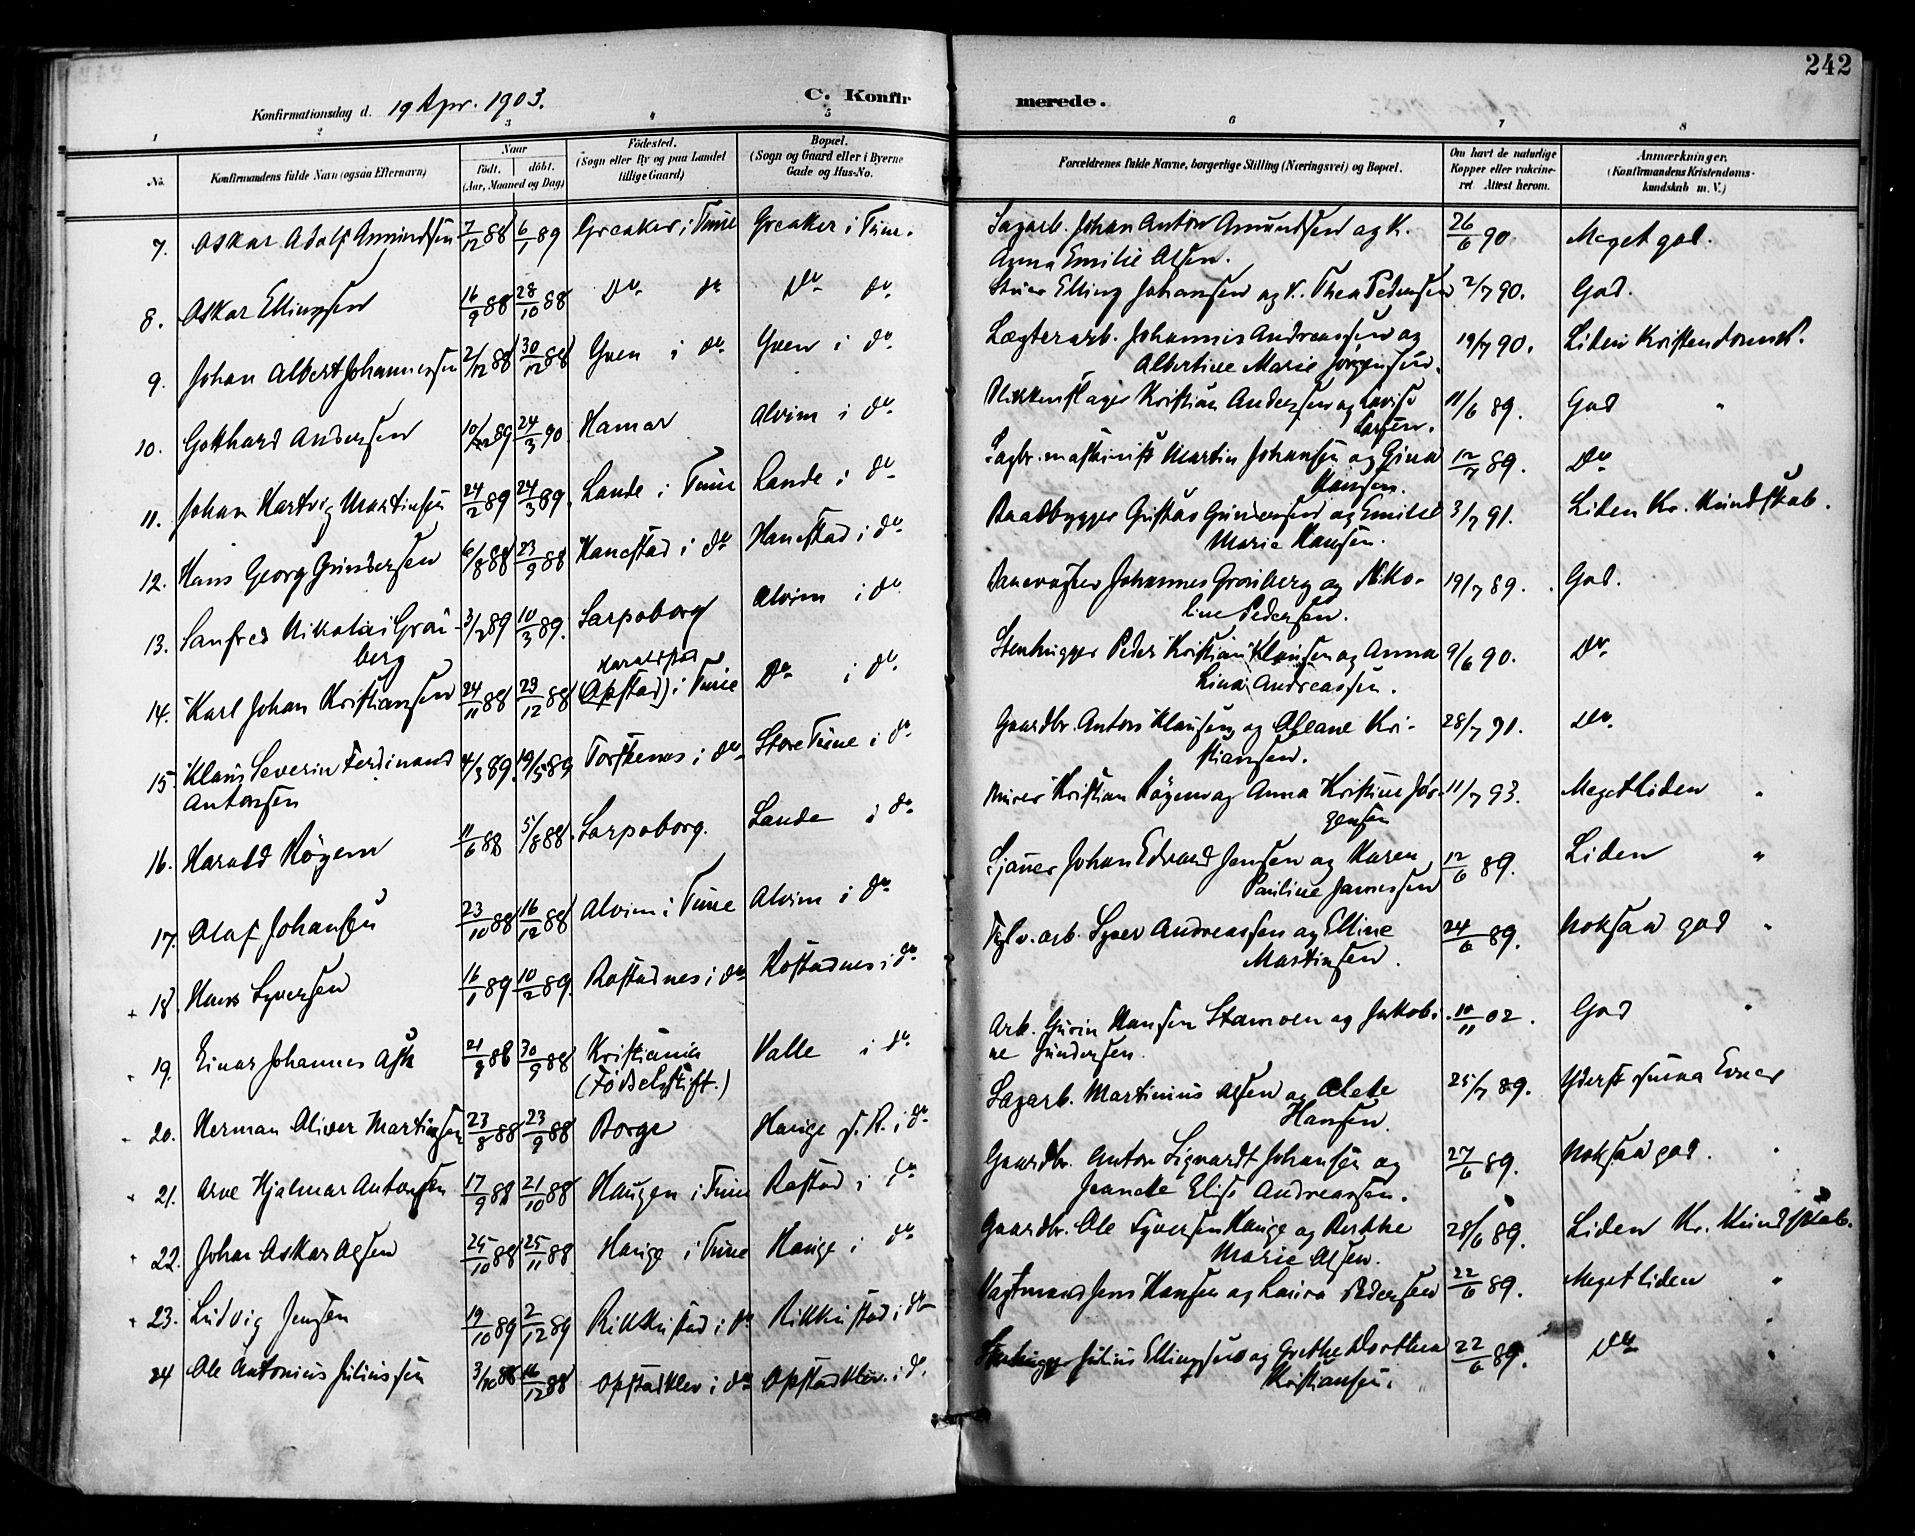 242
Konfirmationsdag d. 19 Apr. 1903.
C. Konfirmerede.
1 2 3 4 5 6 7 8
No. Konfirmandens fulde Navn (ogsaa Efternavn) Naar født. døbt. (Aar, Maaned og Dag) Fødested. (Sogn eller By og paa Landet tillige Gaard) Bopæl. (Sogn og Gaard eller i Byerne Gade og Hus-No. Forældrenes fulde Navne, borgerlige Stilling (Næringsvei) og Bopæl. Om havt de naturlige Kopper eller vakcineret Attest herom. Anmærkninger. (Konfirmandens Kristendomskundskab m. V.)
7. Oskar Adolf Amundsen 7/12 88 6/1 89 Greaker i Tune Greaker i Tune. Sagarb. Johan Anton Amundsen og K. 26/6 90. Meget god.
Anna Emilie Olsen.
8. Oskar Ellingsen 16/9 88 28/10 88 Do do Do do Elling Johansen og K. Thea Pedersen 2/7 90. God.
9. Johan Albert Johannessen 2/12 88 30/12 88 Yven i do Yven i do Lægterarb. Johannes Andreassen og 19/7 90. Liden Kristendomsk.
Albertine Marie Jørgensen.
10. Gotthard Andersen 10/12 89 24/3 90 Hamar Alvim i do Blikkenslager Kristian Andersen og Lovise 11/6 89. God "
Larsen.
11. Johan Hartvig Martinsen 24/2 89 24/3 89. Lande i Tune Lande i do Sagbr. maskinist Martin Johansen og Gina 12/7 89. Do
Hansen.
12. Hans Georg Gundersen 6/8 88 23/9 88 Hanestad i do Hanestad i do Baadbygger Gustav Gundersen og Emilie 3/7 91. Liden Kr. Kundskab.
Marie Hansen.
13. Sanfred Nikolai Gron- 3/2 89 10/3 89. Sarpsborg Alvim i do Banevogter Johannes Gronberg og Niko- 19/7 89. God.
berg line Pedersen.
14. Karl Johan Kristiansen 24/11 88 23/12 88 (Opstad) i Tune Do i do Stenhugger Peder Kristian Klausen og Anna 9/6 90. Do
Lina Andreassen.
15. Klaus Severin Ferdinand 4/3 89. 19/5 89 Torskenes i do Store Tune i do Gaardbr. Anton Klausen og Oleane Kri- 28/7 91. Do
Antonsen stiansen.
16. Harald Røgem 11/6 88 5/8 88. Sarpsborg. Lande i do Murer Kristian Røgem og Anna Kristine Jør- 11/7 93. Meget liden "
gensen
17. Olaf Johansen 23/10 88 16/12 88 Alvim i Tune Alvim i do Sjauer Johan Edvard Jensen og Karen 12/6 89. Liden "
Pauline Jamessen
18. Hans Syversen 16/1 89 10/2 89. Rostadnes i do Rostadnes i do Teglv. arb. Syver Andreassen og Elline 24/6 89. Noksaa god "
Martinsen.
19. Einar Johannes Ask 21/8 88 30/9 88 Kristiania Valle i do Arb. Hansen Stamoen og Jakobi- 10/11 02. God "
(Fødselsstift.) ne Gundersen.
20. Herman Oliver Martinsen 23/8 88 23/9 88 Borge Hauge i do Sagarb. Martinius Olsen og Olete 25/7 89. Yderst svma Evner
Hansen.
21. Arve Hjalmar Antonsen 17/9 88 21/10 88 Haugen i Tune Rostad i do Gaardbr. Anton Sigvardt Johansen og 27/6 89. Noksaa god. "
Jeanete Elise Andreassen.
22. Johan Oskar Olsen 25/10 88 25/11 88 Hauge i Tune Hauge i do Gaardbr. Ole Syversen Hauge og Berthe 28/6 89. Liden Kr. Kundskab.
Marie Olsen.
23. Ludvig Jensen 19/10 89 2/12 89 Bikkustad i do Bikkustad i do Vagtmand Jens Hansen og Laura Pedersen 22/6 89. Meget liden "
24 Ole Antonius Juliussen 3/10 88 16/12 88 Opstadklev i do Opstadklev. i d. Stenhugger Julius Ellingsen og Grethe Dorthea 22/6 89. Do "
Kristiansen.